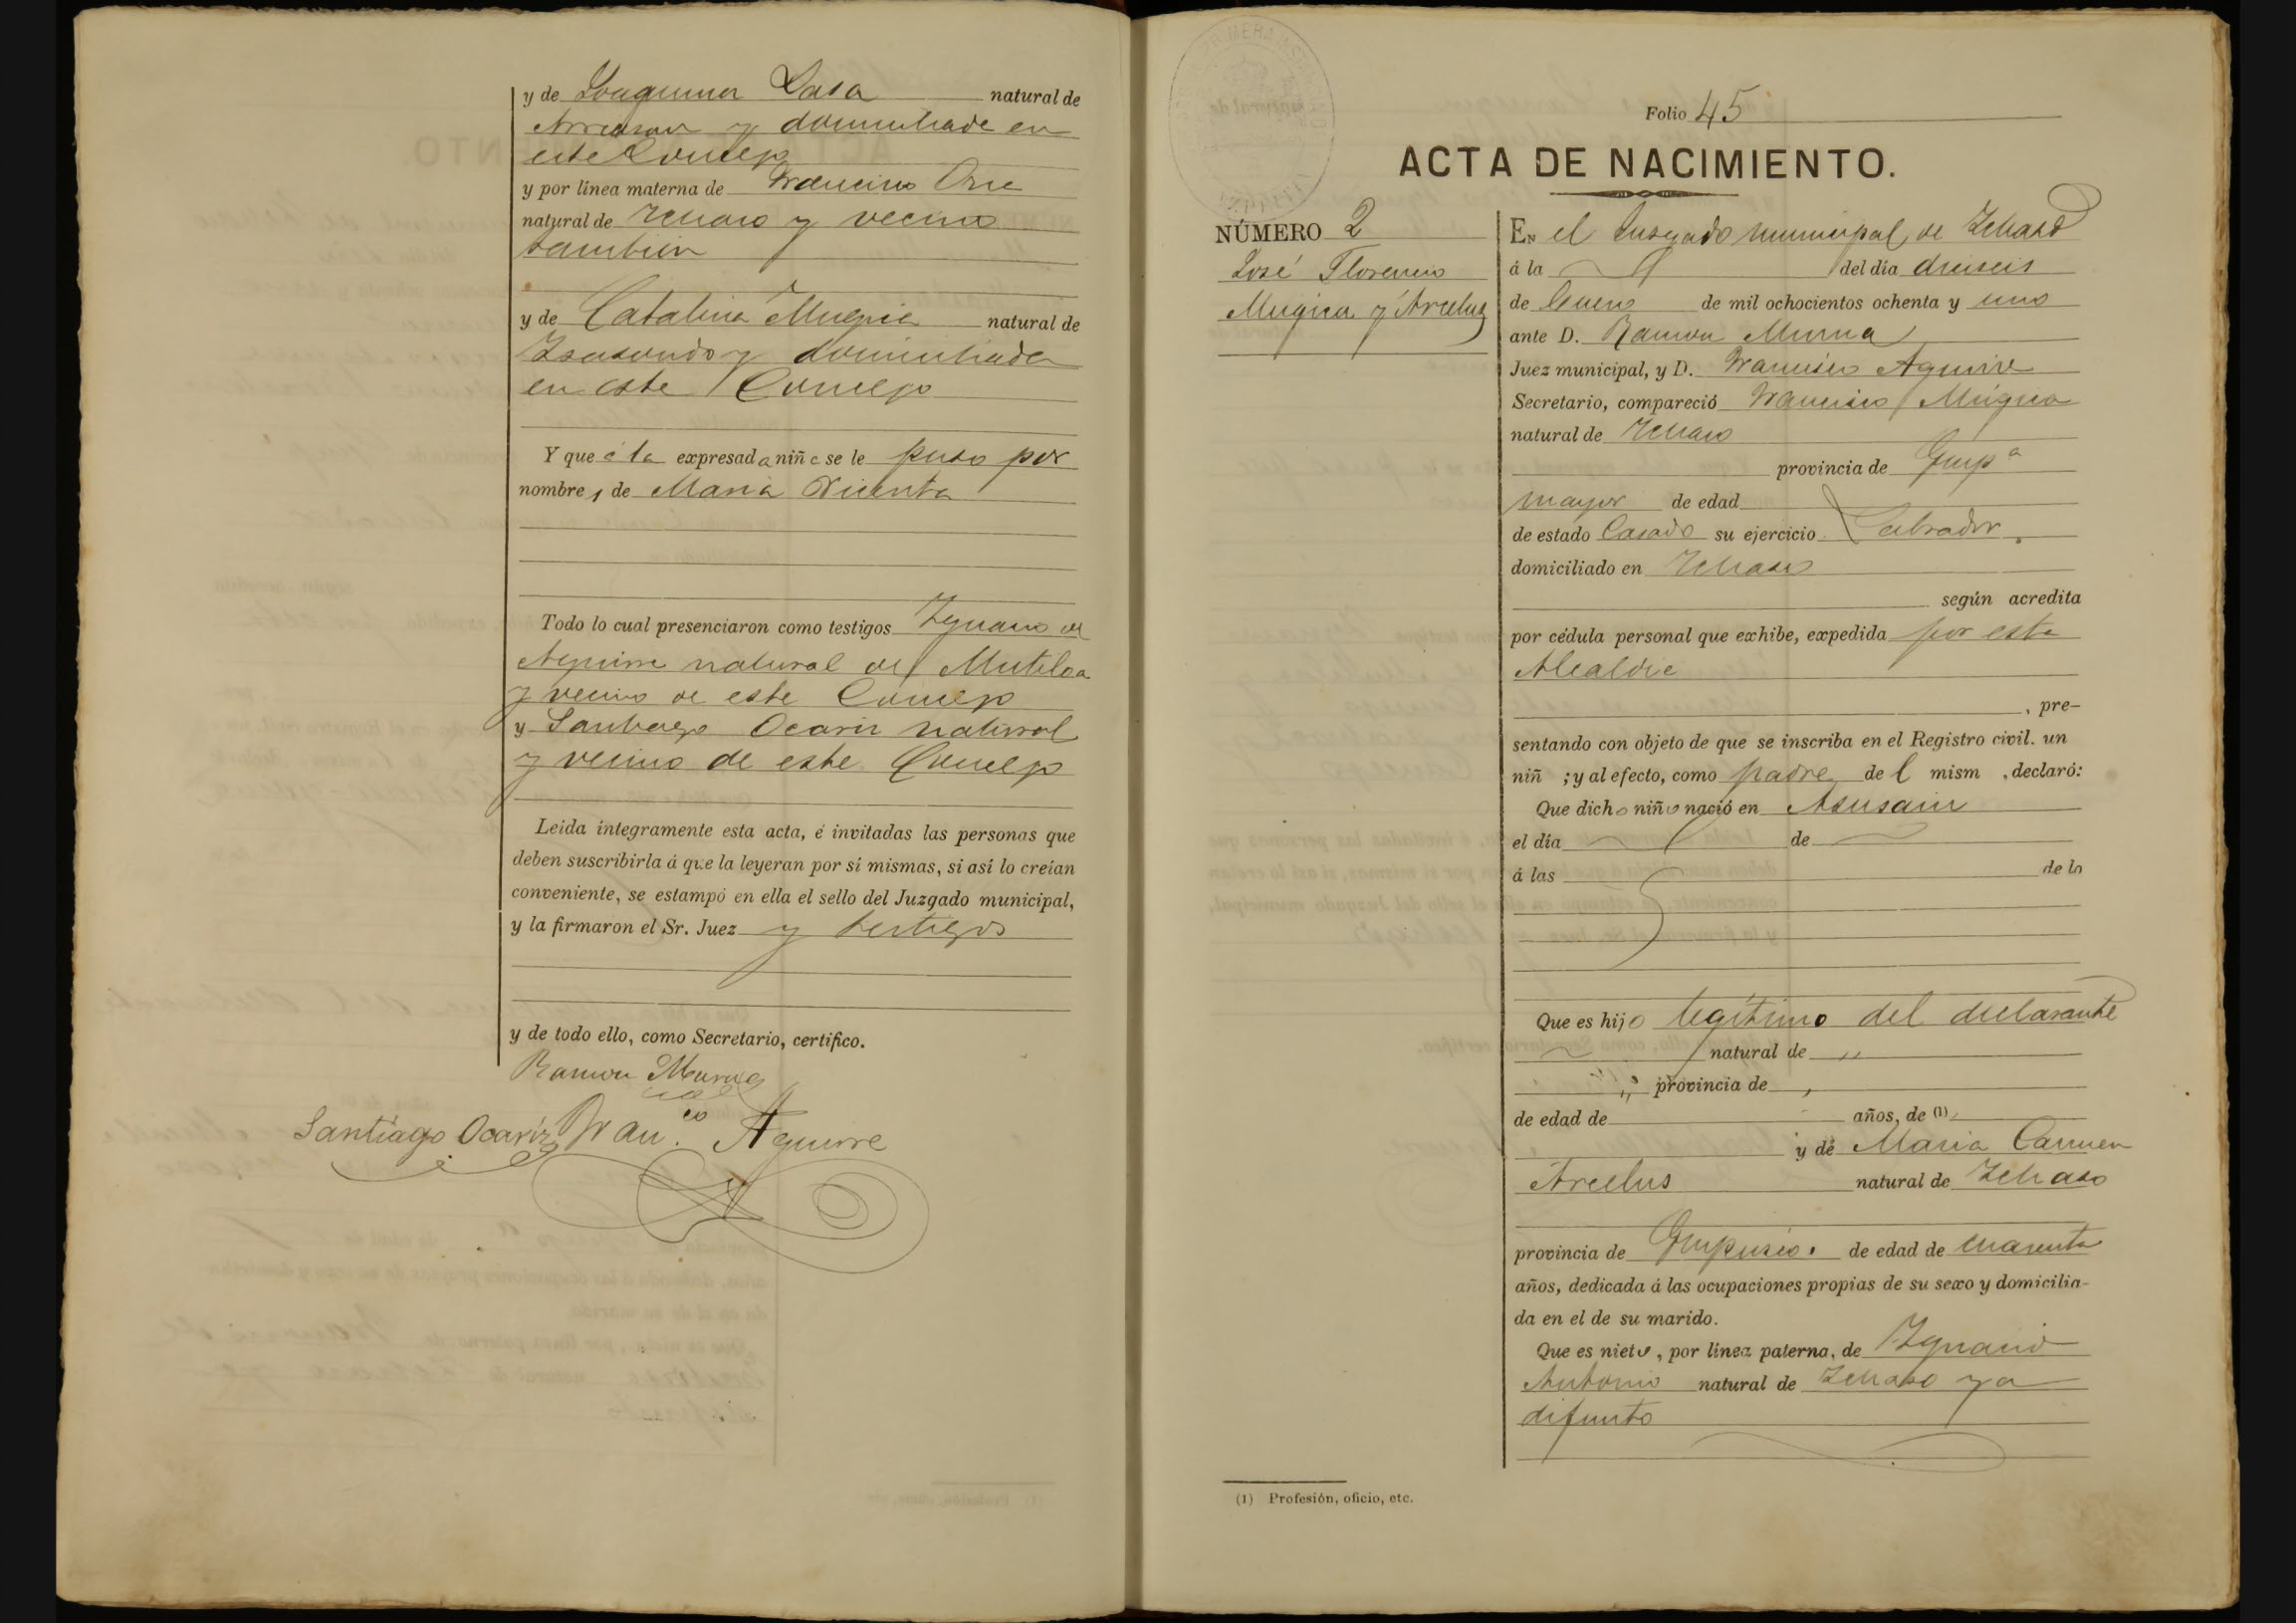 y de Joaquina Lasa natural de
Arriaran y domiciliada en
este Concejo
y por línea materna de Francisco Oria
natural de Ichaso y vecino
tambien
y de Catalina Mugica natural de
Isasondo y domiciliada
en este Concejo
Y que á la expresada niña se le puso por
nombre, de Maria Vicenta
Todo lo cual presenciaron como testigos Ygnacio de
Aguirre natural de Mutiloa
y vecino de este Concejo
y Santiago Ocariz natural
y vecino de este Concejo
Leida íntegramente esta acta, é invitadas las personas que
deben suscribirla á que la leyeran por sí mismas, si así lo creían
conveniente, se estampó en ella el sello del Juzgado municipal,
y la firmaron el Sr. Juez y testigos
y de todo ello, como Secretario, certifico.
Ramon Murua
Santiago Ocariz Fran.co Aguirre
Folio 45
ACTA DE NACIMIENTO.
NÚMERO 2
José Florencio
Mugica y Arcelus
En el Jusgado municipal de Ichaso
á la del día dieiseis
de Enero de mil ochocientos ochenta y uno
ante D. Ramon Murua
Juez municipal, y D. Francisco Aguirre
Secretario, compareció Francisco Múgica
natural de Ichaso
provincia de Guipa
mayor de edad
de estado Casado su ejercicio Labrador.
domiciliado en Ichaso
según acredita
por cédula personal que exhibe, expedida por esta
Alcaldia
, pre-
sentando con objeto de que se inscriba en el Registro civil. un
niñ ; y al efecto, como padre del mism , declaró:
Que dicho niño nació en
el día de
á las de la
Que es hijo legítimo del declarante
natural de ,,
,, provincia de ,
de edad de años, de (1)
y de Maria Carmen
Arcelus natural de Ichaso
provincia de Guipuscoa de edad de cuarenta
años, dedicada á las ocupaciones propias de su sexo y domicilia-
da en el de su marido.
Que es nieto, por línea paterna, de Ygnacio
Antonio natural de Ichaso ya
difunto
(1) Profesión, oficio, etc.